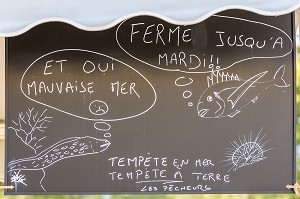 FERMÉ JUSQU'A
MARDI!!!
ET OUI
MAUVAISE MER
TEMPÊTE EN MER
TEMPÊTE À TERRE
LES PÊCHEURS